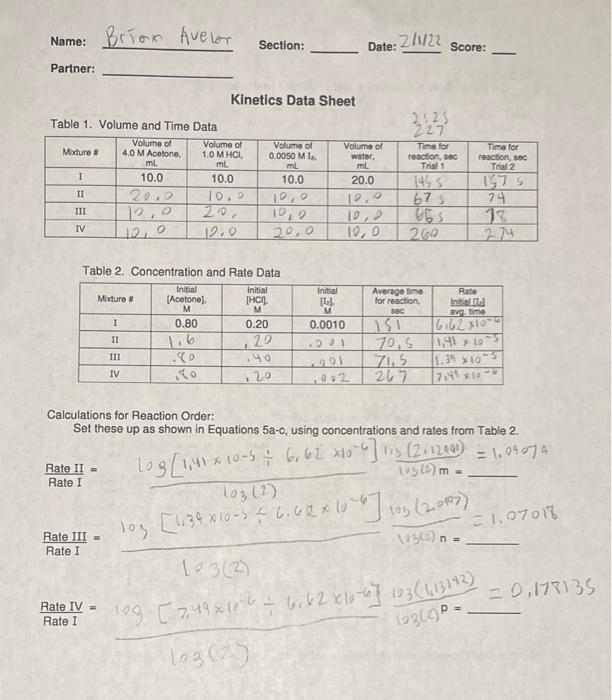 Name: Brian Avelar Section: Date: 2/1/22 Score:
Partner:
Kinetics Data Sheet
Table 1. Volume and Time Data
2:25
227
Mixture # Volume of 4.0 M Acetone, mL Volume of 1.0 M HCl, mL Volume of 0.0050 M I₂, mL Volume of water, mL Time for reaction, sec Trial 1 Time for reaction, sec Trial 2
I 10.0 10.0 10.0 20.0 145 s 157 s
II 20.0 10.0 10.0 10.0 67 s 74
III 10.0 20. 10.0 10.0 65 s 78
IV 10.0 10.0 20.0 10.0 260 274
Table 2. Concentration and Rate Data
Mixture # Initial [Acetone], M Initial [HCl], M Initial [I₂], M Average time for reaction, sec Rate Initial [I₂] avg. time
I 0.80 0.20 0.0010 151 6.62 x10-6
II 1.6 .20 .001 70.5 1.41 x 10-5
III .80 .40 .001 71.5 1.39 x10-5
IV .80 .20 .002 267 7.49 x10-6
Calculations for Reaction Order:
Set these up as shown in Equations 5a-c, using concentrations and rates from Table 2.
Rate II = log [1.41 x 10-5 ÷ 6.62 x10-6] log (2.12991) = 1.09079
Rate I log(2) log(2) m =
Rate III = log [1.39 x10-5 ÷ 6.62 x 10-6] log (2.0997) = 1.07018
Rate I log(2) log(2) n =
Rate IV = log [7.49 x10-6 ÷ 6.62 x10-6] log(1.13142) = 0.178135
Rate I log(2) log(2) p =